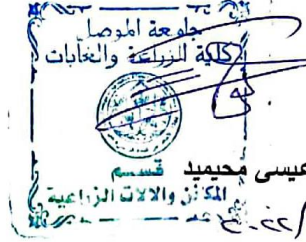 جامعة الموصل
كلية الزراعة والغابات
عيسى محيميد
قسم
المكائن والالات الزراعية